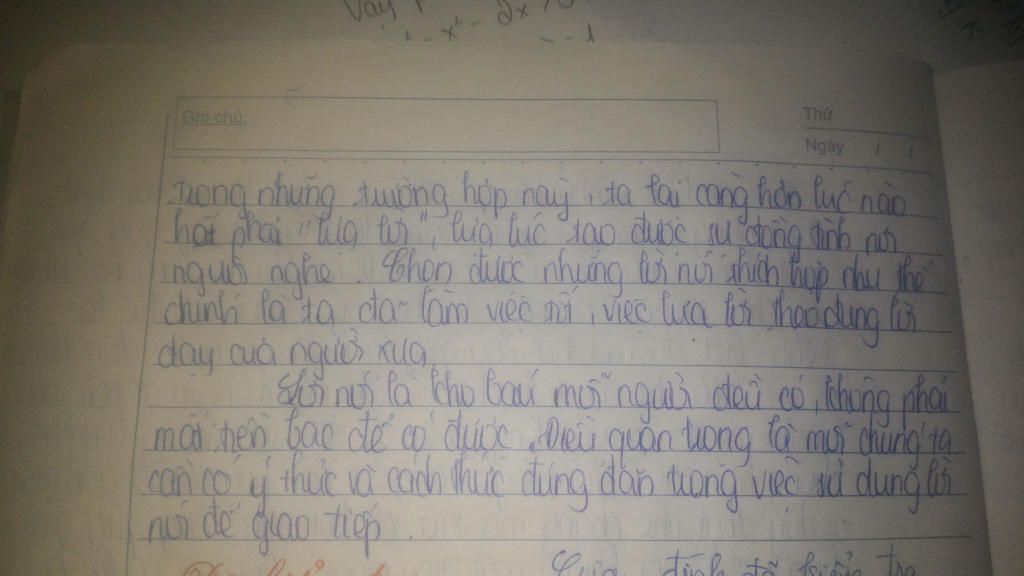 Vậy
x² - 2x
Ghi chú:
Thứ
Ngày / /
trong những trường hợp này, ta lại càng hơn lúc nào
hết phải "lựa lời", lựa lúc tạo được sự đồng tình nơi
người nghe. Chọn được những lời nói thích hợp như thế
chính là ta đã làm việc tốt, việc lựa lời theo đúng lời
dạy của người xưa.
Lời nói là kho báu mỗi người đều có, không phải
mất tiền bạc để có được. Điều quan trọng là mỗi chúng ta
cần có ý thức và cách thức đúng đắn trong việc sử dụng lời
nói để giao tiếp.